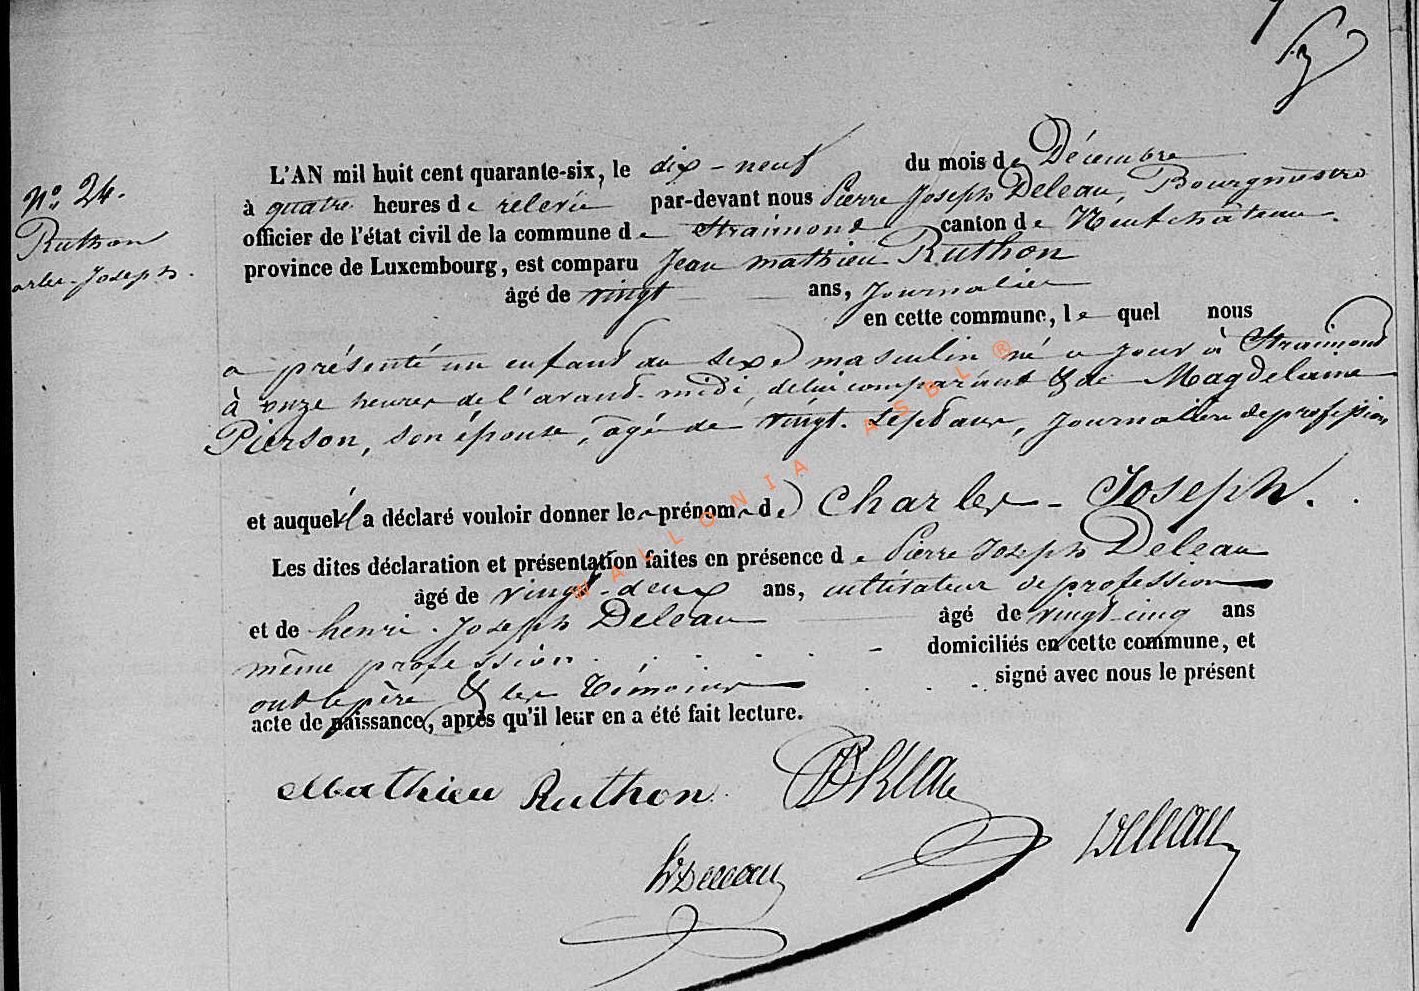 N.º 24.
Ruthon
arles-Joseph.
L'AN mil huit cent quarante-six, le dix-neuf du mois de Décembre
à quatre heures de relevée par-devant nous Pierre Joseph Deleau, Bourgmestre
officier de l'état civil de la commune de Straimont canton de Neufchâteau.
province de Luxembourg, est comparu Jean mathieu Ruthon
âgé de vingt ans, Journalier
en cette commune, le quel nous
a présenté un enfant du sexe masculin né ce jour à Straimont
à onze heures de l'avant-midi, de lui comparant & de Magdelaine
Pierson, son épouse, agé de vingt-sept ans, journalière de profession
et auquel il a déclaré vouloir donner les prénoms de Charles-Joseph.
Les dites déclaration et présentation faites en présence de Pierre Joseph Deleau
âgé de vingt-deux ans, cultivateur de profession
et de henri-Joseph Deleau âgé de vingt cinq ans
même profession domiciliés en cette commune, et
ont le père & les témoins signé avec nous le présent
acte de naissance, après qu'il leur en a été fait lecture.
Mathieu Ruthon
Deleau
WALLONIA ASBL ®